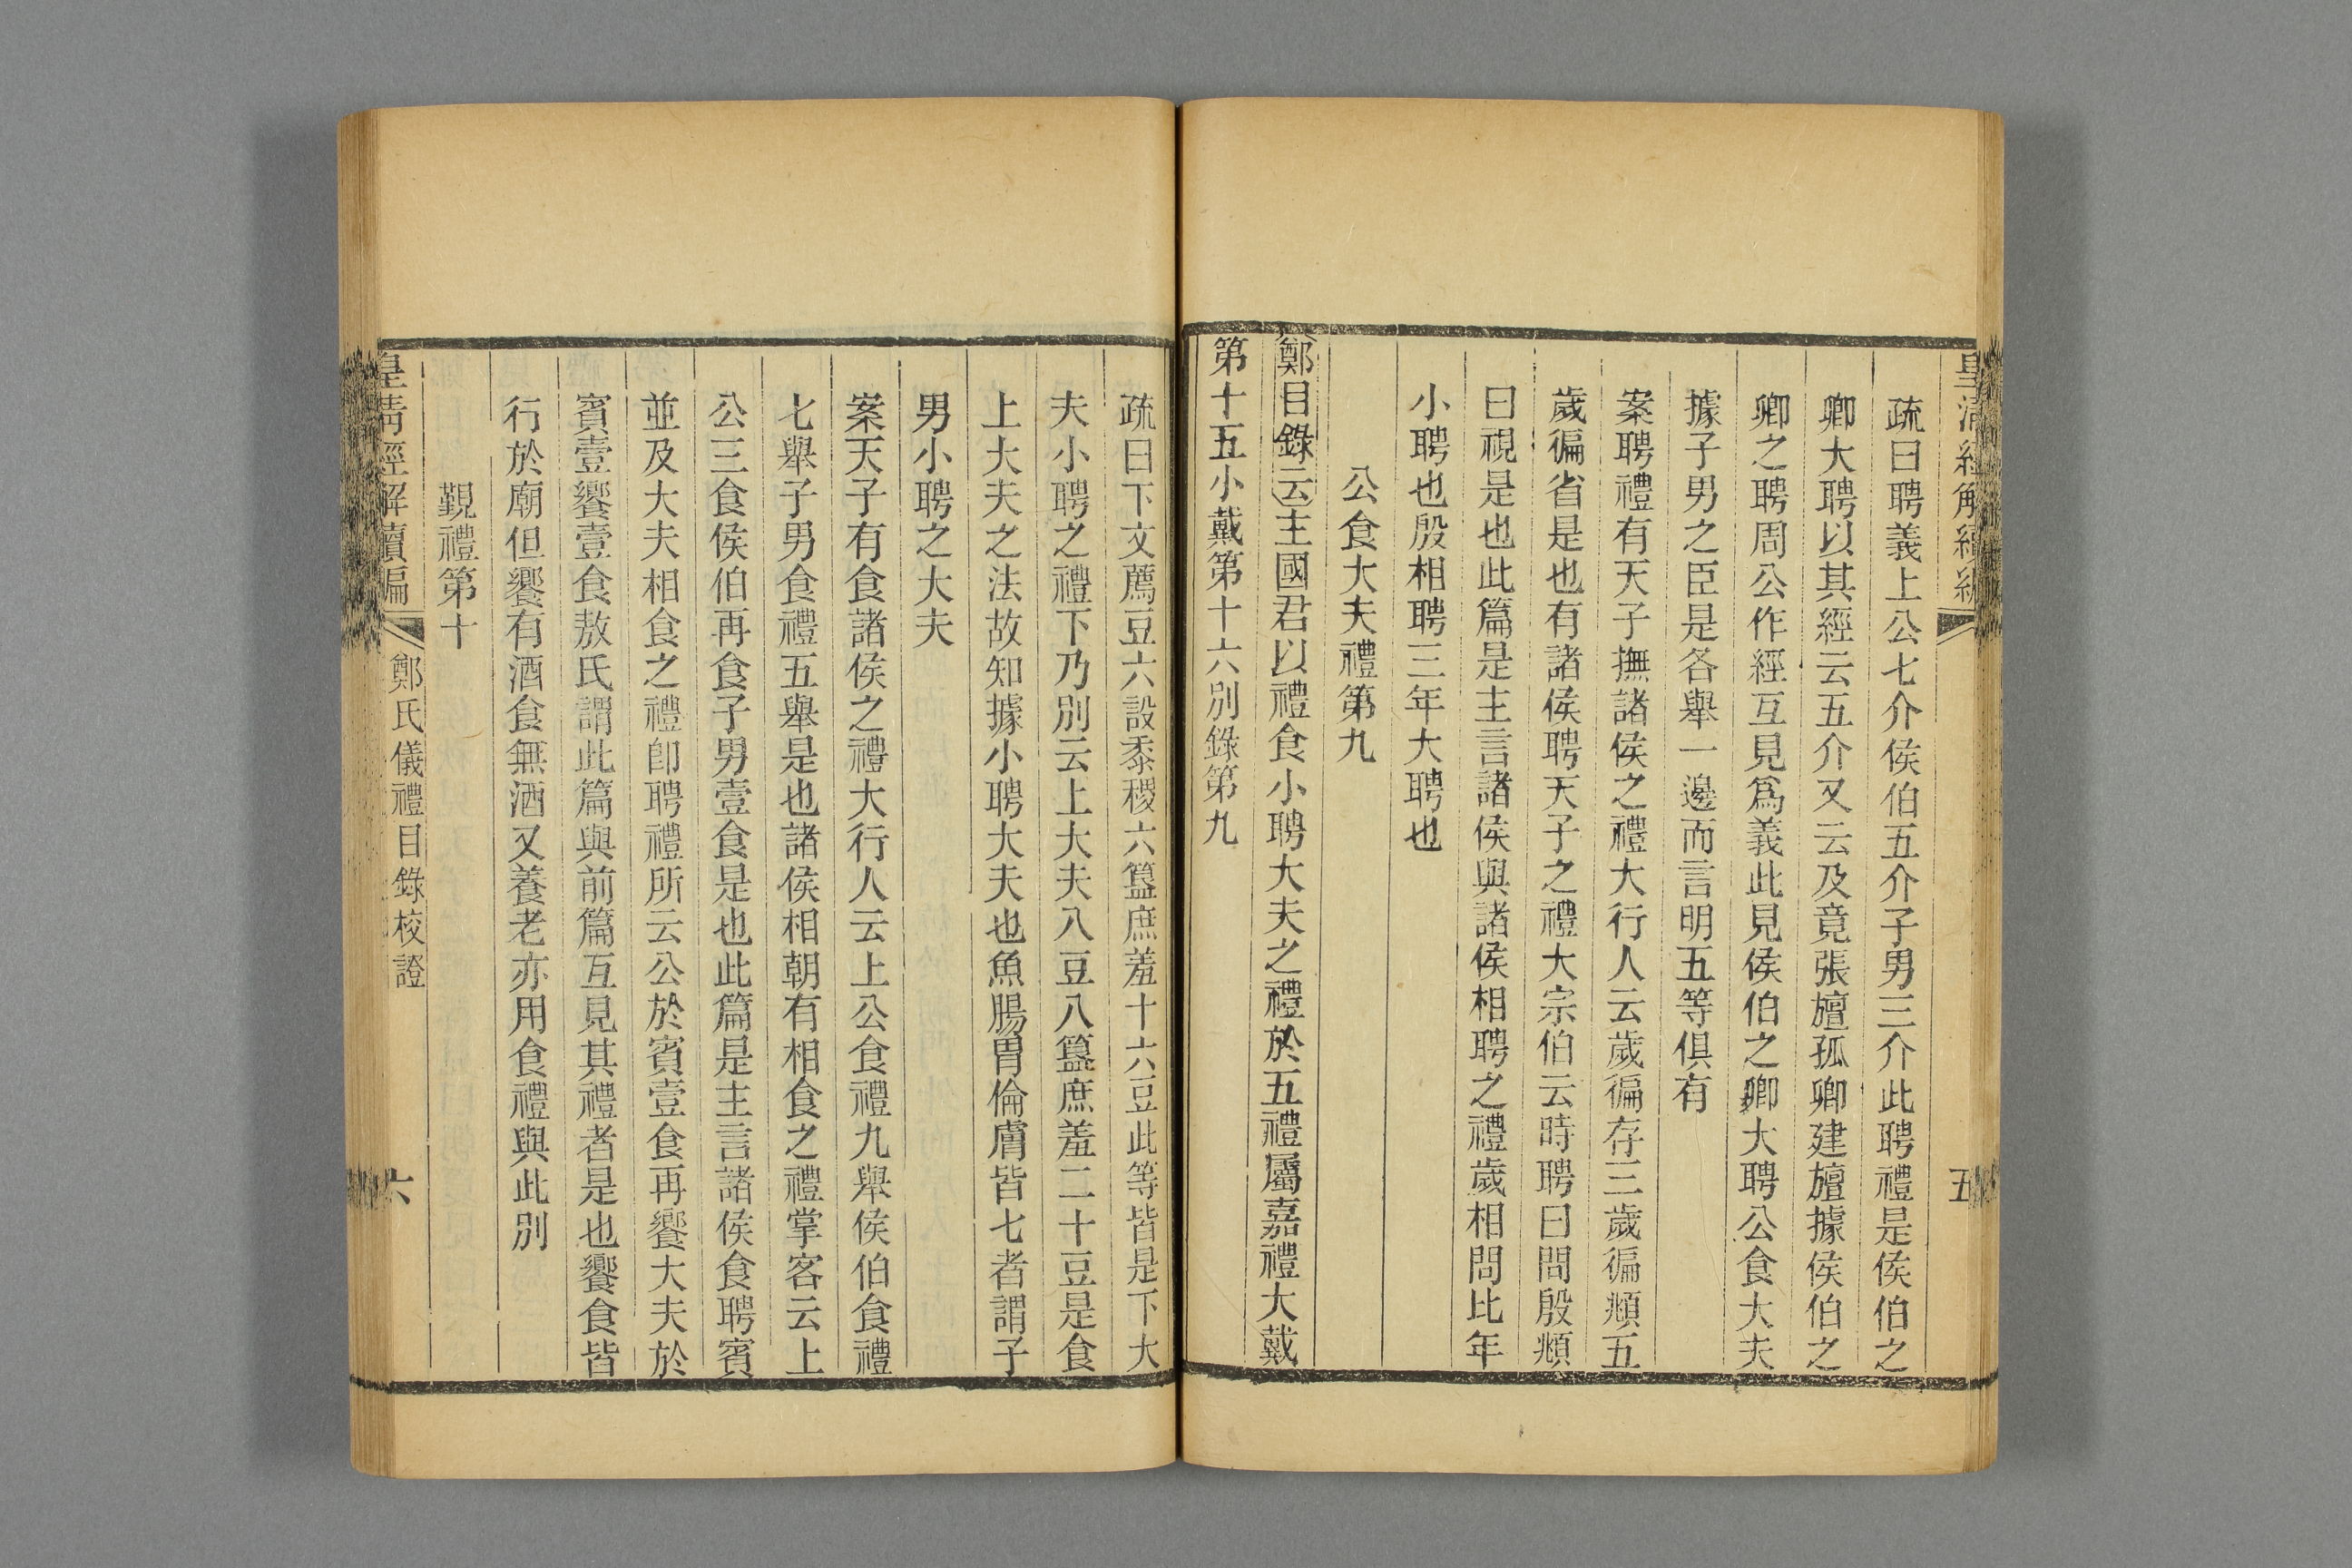 皇清經解續編
五
疏曰聘義上公七介侯伯五介子男三介此聘禮是侯伯之
卿大聘以其經云五介又云及竟張旜孤卿建旜據侯伯之
卿之聘周公作經互見爲義此見侯伯之卿大聘公食大夫
據子男之臣是各舉一邊而言明五等俱有
案聘禮有天子撫諸侯之禮大行人云歲徧存三歲徧頫五
歲徧省是也有諸侯聘天子之禮大宗伯云時聘曰問殷頫
曰視是也此篇是主言諸侯與諸侯相聘之禮歲相問比年
小聘也殷相聘三年大聘也
公食大夫禮第九
鄭目錄云主國君以禮食小聘大夫之禮於五禮屬嘉禮大戴
第十五小戴第十六別錄第九
疏曰下文薦豆六設黍稷六簋庶羞十六豆此等皆是下大
夫小聘之禮下乃別云上大夫八豆八簋庶羞二十豆是食
上大夫之法故知據小聘大夫也魚腸胃倫膚皆七者謂子
男小聘之大夫
案天子有食諸侯之禮大行人云上公食禮九舉侯伯食禮
七舉子男食禮五舉是也諸侯相朝有相食之禮掌客云上
公三食侯伯再食子男壹食是也此篇是主言諸侯食聘賓
並及大夫相食之禮卽聘禮所云公於賓壹食再饗大夫於
賓壹饗壹食敖氏謂此篇與前篇互見其禮者是也饗食皆
行於廟但饗有酒食無酒又養老亦用食禮與此別
覲禮第十
皇清經解續編
鄭氏儀禮目錄校證
六